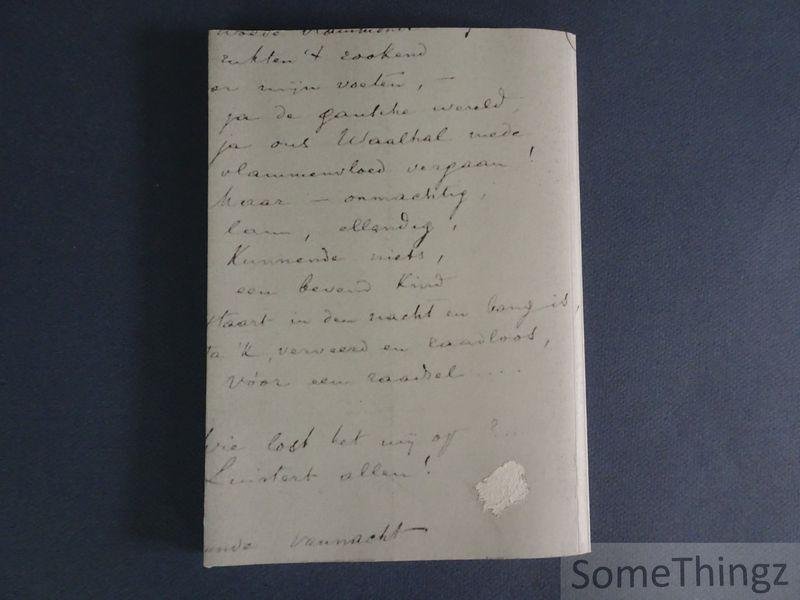 rukten 't rookend
mijn voeten, –
ja de gansche wereld,
ja ons Waalhal mede
vlammenvloed vergaan!
Maar – onmachtig,
lam, ellendig,
Kunnende niets,
een bevend Kind
staart in den nacht en bang is,
'k, verveerd en raadloos,
vóór een raadsel ....
wie lost het mij op ?...
Luistert allen!
vannacht
SomeThingz